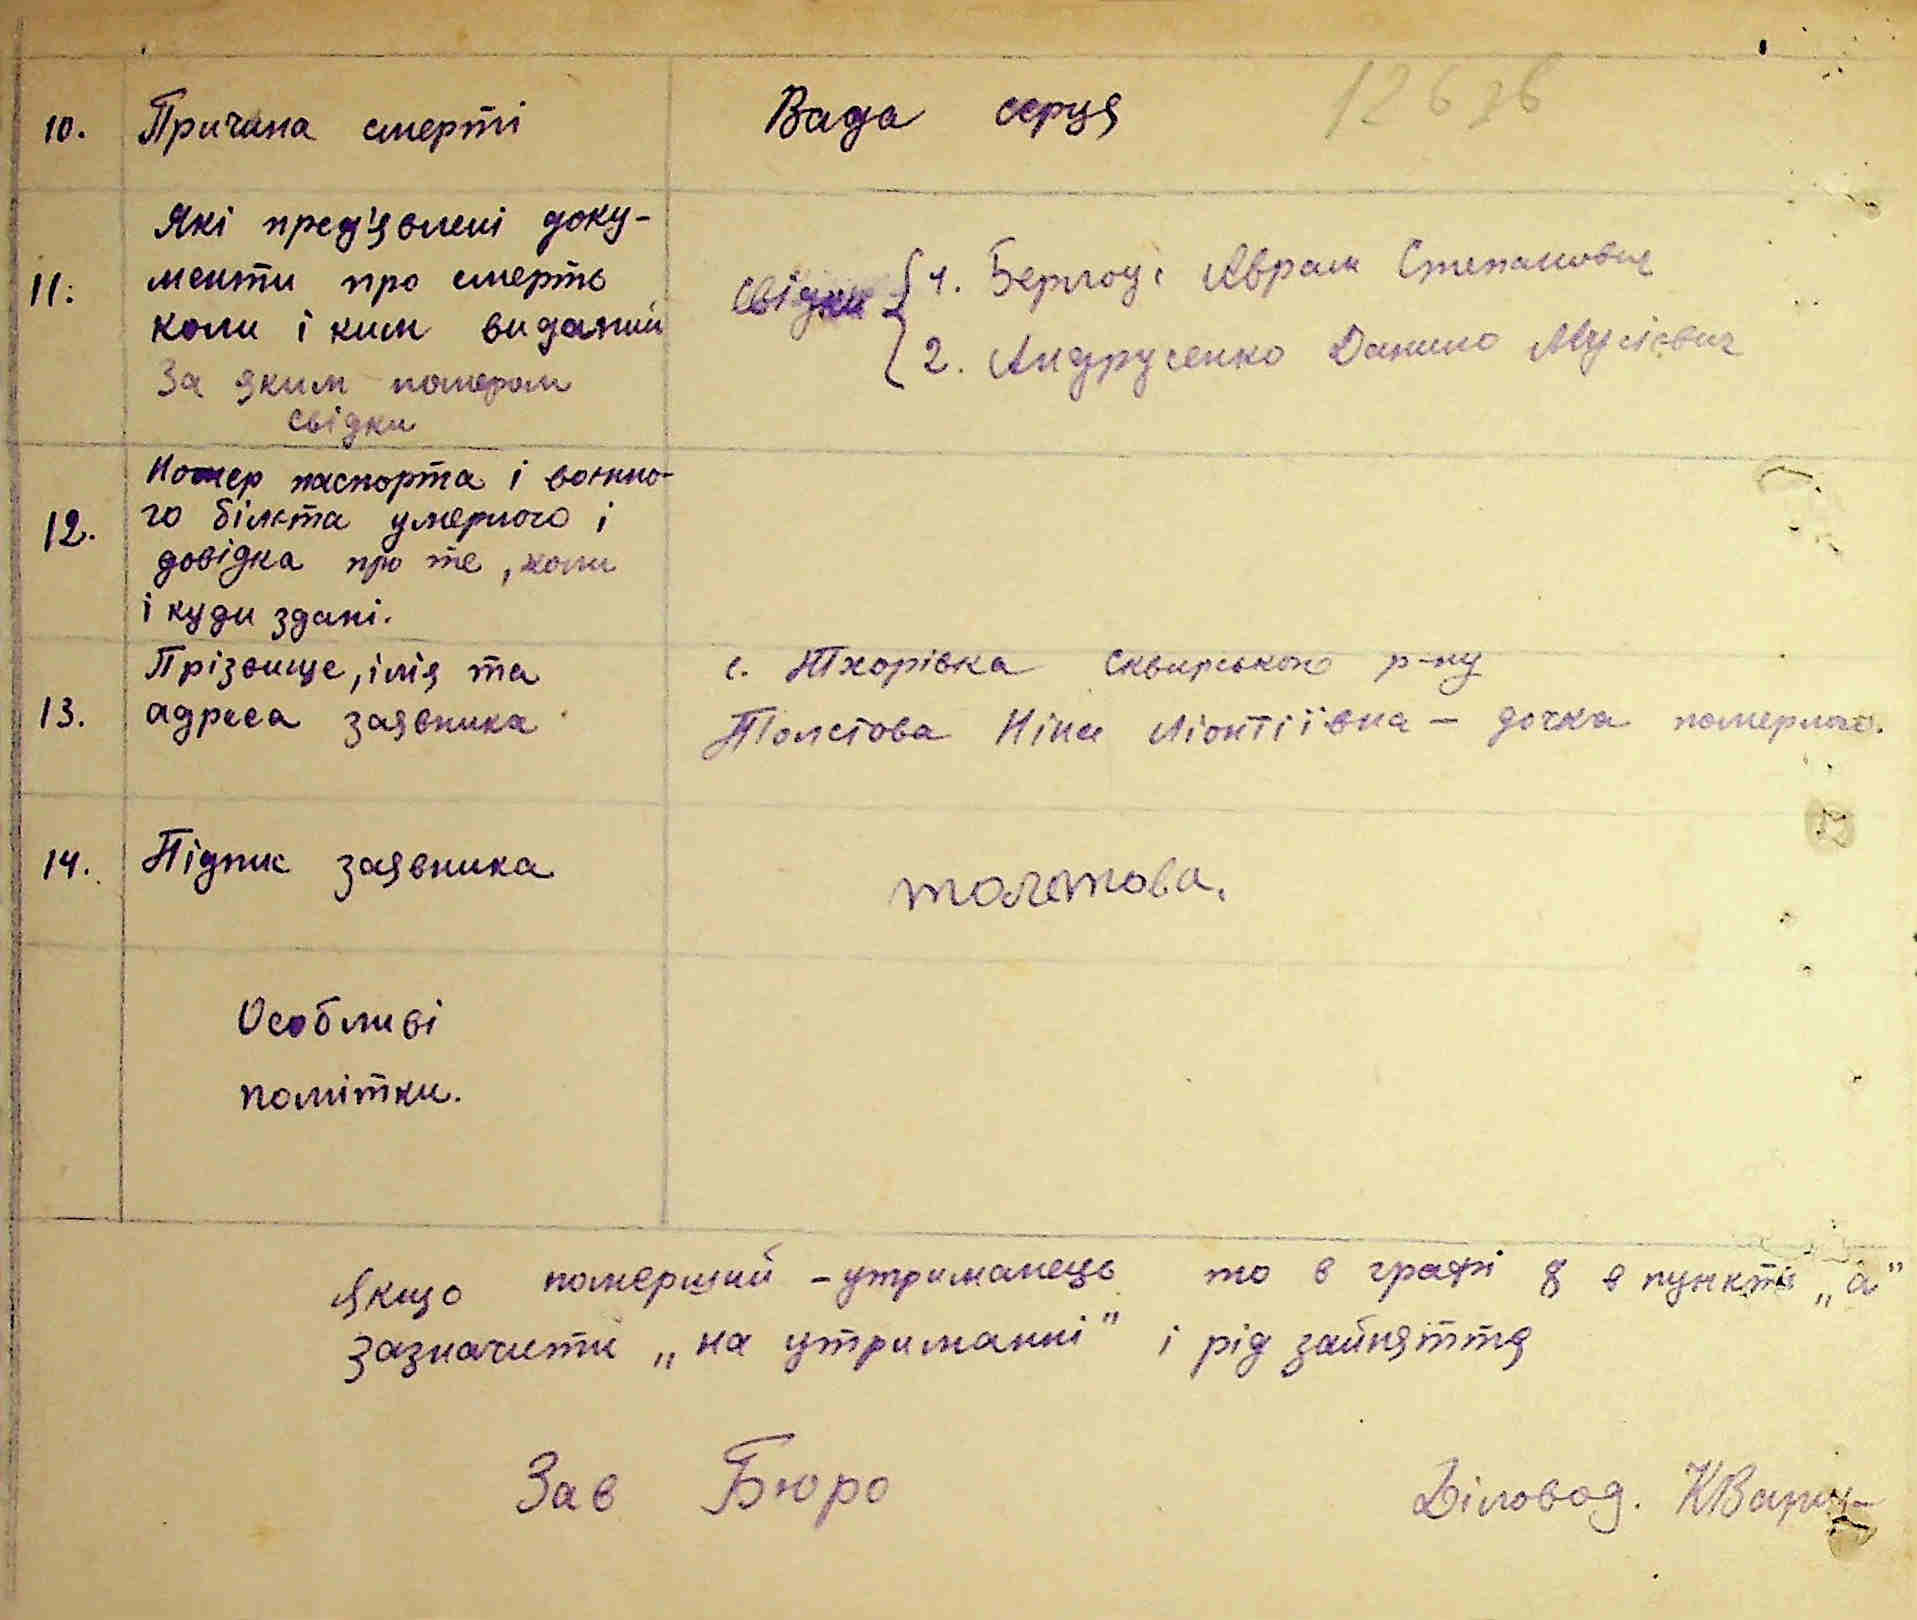 10. Причина смерті Вада серця
Які пред'явлені доку-
11. менти про смерть
коли і ким виданий
За яким номером
свідки
свідки 1. Авраам Степанович
2. Андрусенко Данило Мусієвич
Номер паспорта і воєнно-
12. го білєта умерлого і
довідка про те, коли
і куди здані.
Прізвище, імя та с. Тхорівка Сквирського р-ну
13. адреса заявника Толстова Ніна Ліонтіївна – дочка померлого.
14. Підпис заявника толстова.
Особливі
помітки.
Якщо померший – утриманець то в графі 8 в пункті „а"
зазначити „на утриманні" і рід зайняття
Зав Бюро Діловод.